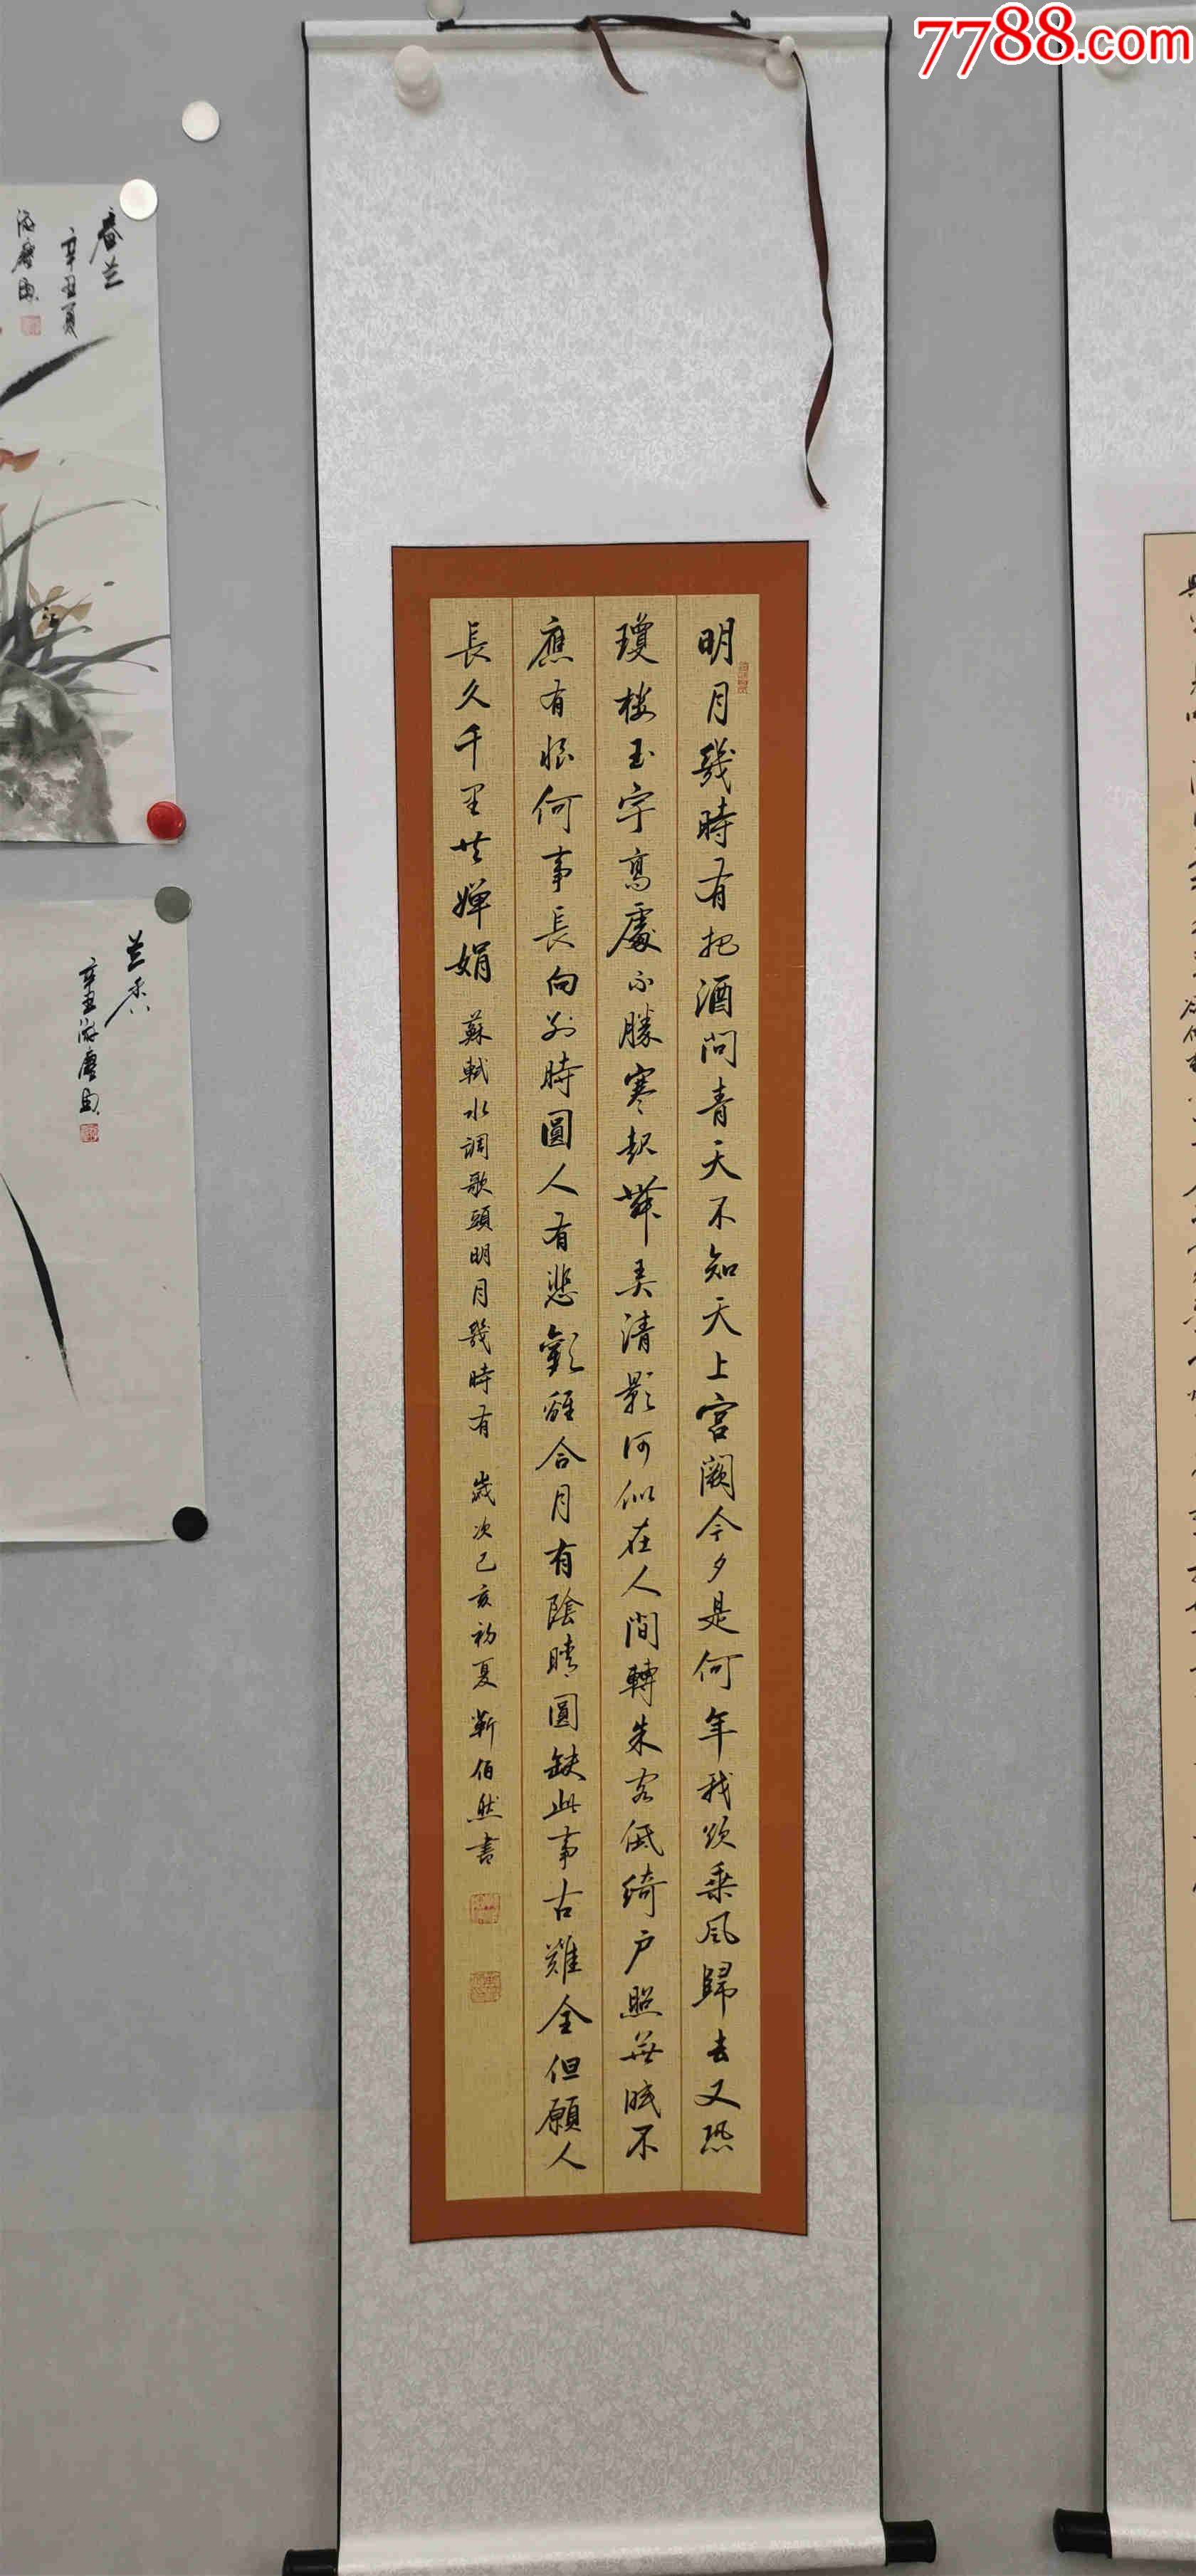 7788.com
明月幾時有把酒問青天不知天上宮闕今夕是何年我欲乘風歸去又恐
瓊楼玉宇高處不勝寒起舞弄清影何似在人間轉朱閣低綺戶照無眠不
應有恨何事長向別時圓人有悲歡離合月有陰晴圓缺此事古難全但願人
長久千里共嬋娟 蘇軾水調歌頭明月幾時有 歲次己亥初夏 靳伯然書
春兰
辛丑夏
兰香
辛丑